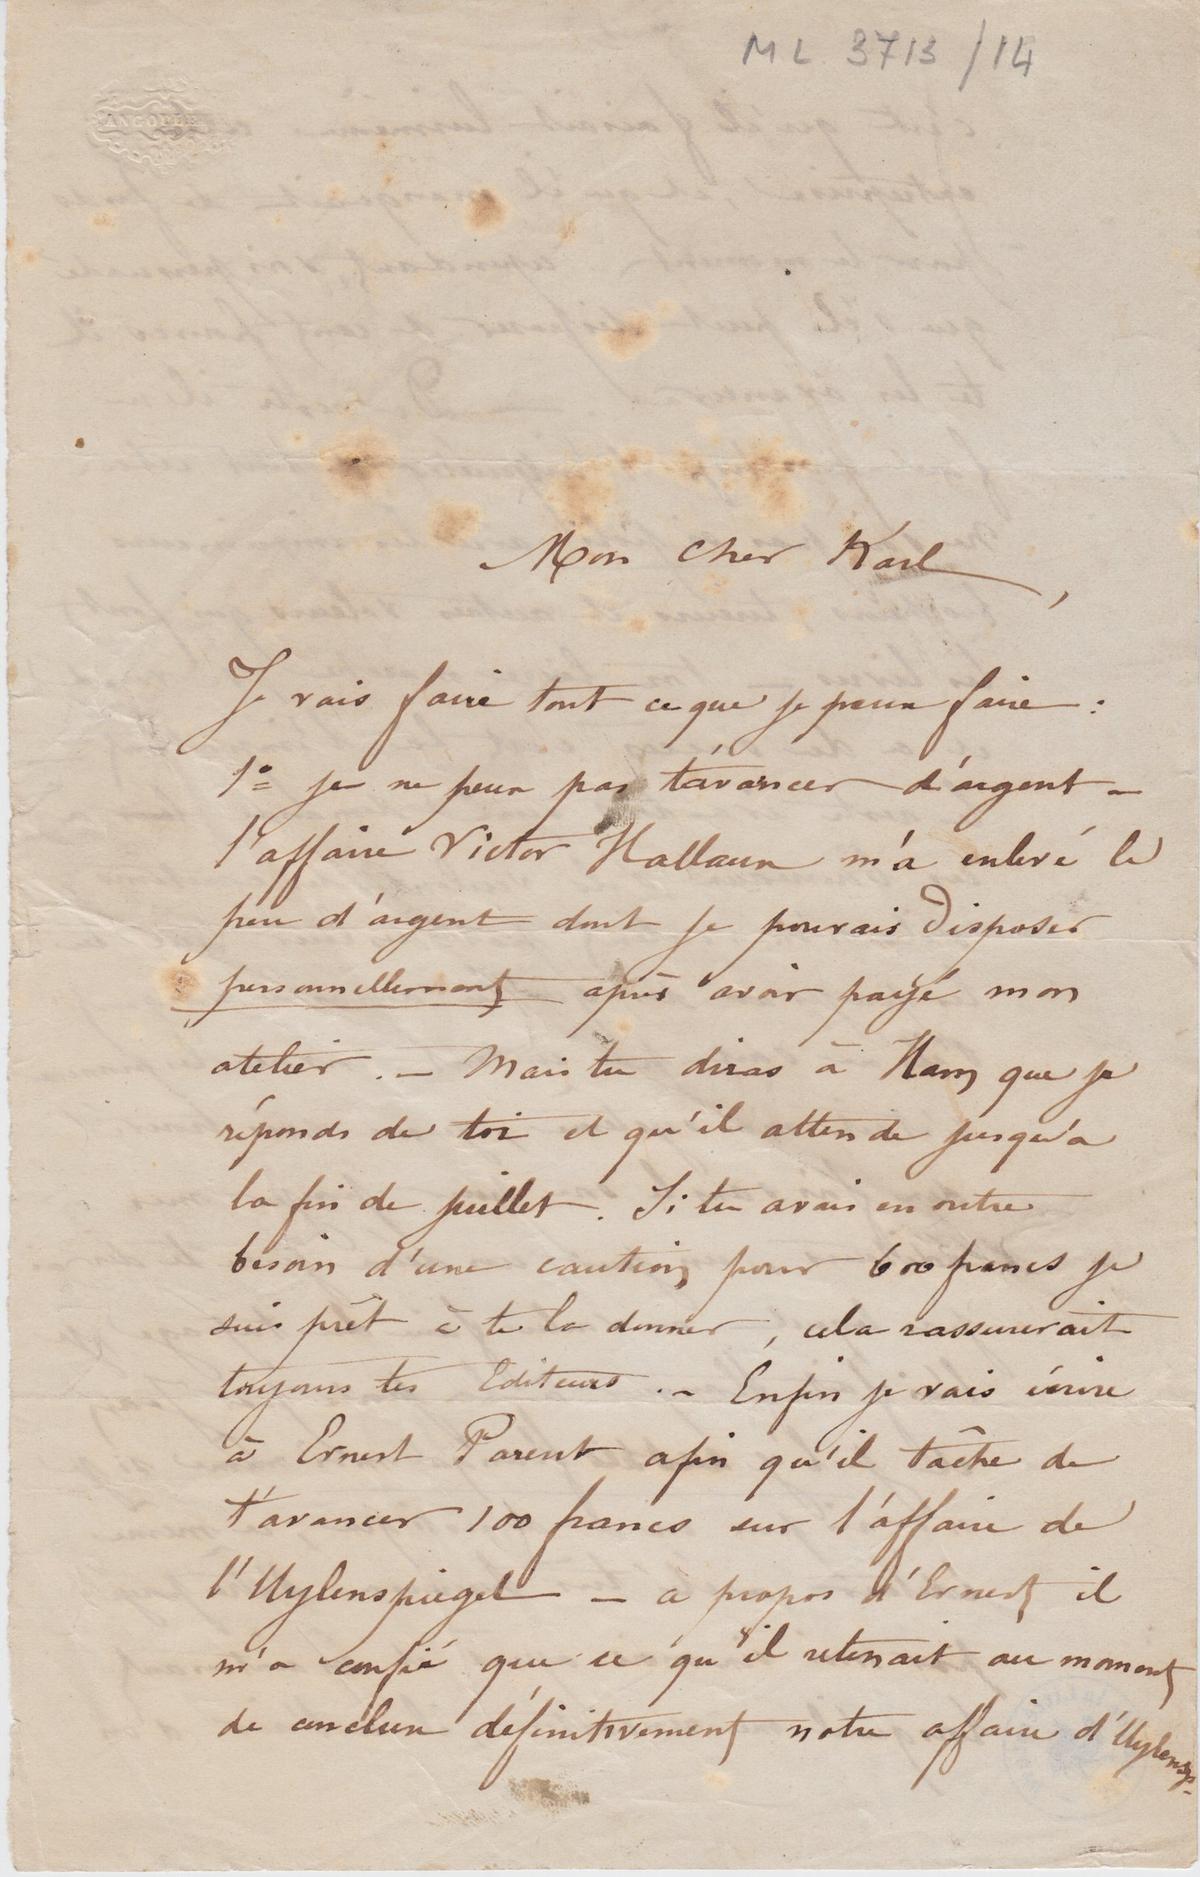 ML 3713/14
ANGOULE
Mon cher Karl,
Je vais faire tout ce que je peux faire :
1º je ne peux pas t'avancer d'argent –
l'affaire Victor Hallaux m'a enlevé le
peu d'argent dont je pouvais disposer
personnellement après avoir payé mon
atelier. – Mais tu diras à Ham que je
réponds de toi et qu'il attende jusqu'a
la fin de juillet. Si tu avais en outre
besoin d'une caution pour 600 francs je
suis prêt à te la donner, cela rassurerait
toujours tes Editeurs. – Enfin je vais écrire
à Ernest Parent afin qu'il tâche de
t'avancer 100 francs sur l'affaire de
l'Uylenspiegel – a propos d'Ernest il
m'a confié que ce qu'il retenait au moment
de conclure définitivement notre affaire d'Uylensp-